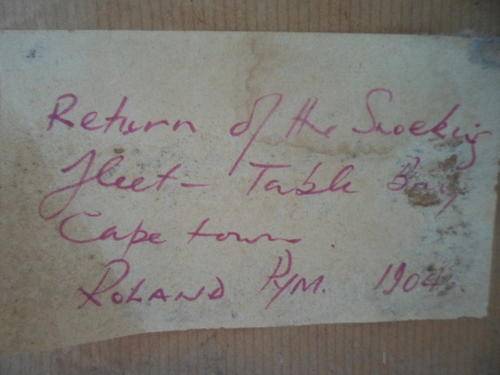 Return of the Snoeking
fleet - Table Bay
Cape town
ROLAND PYM. 1904.